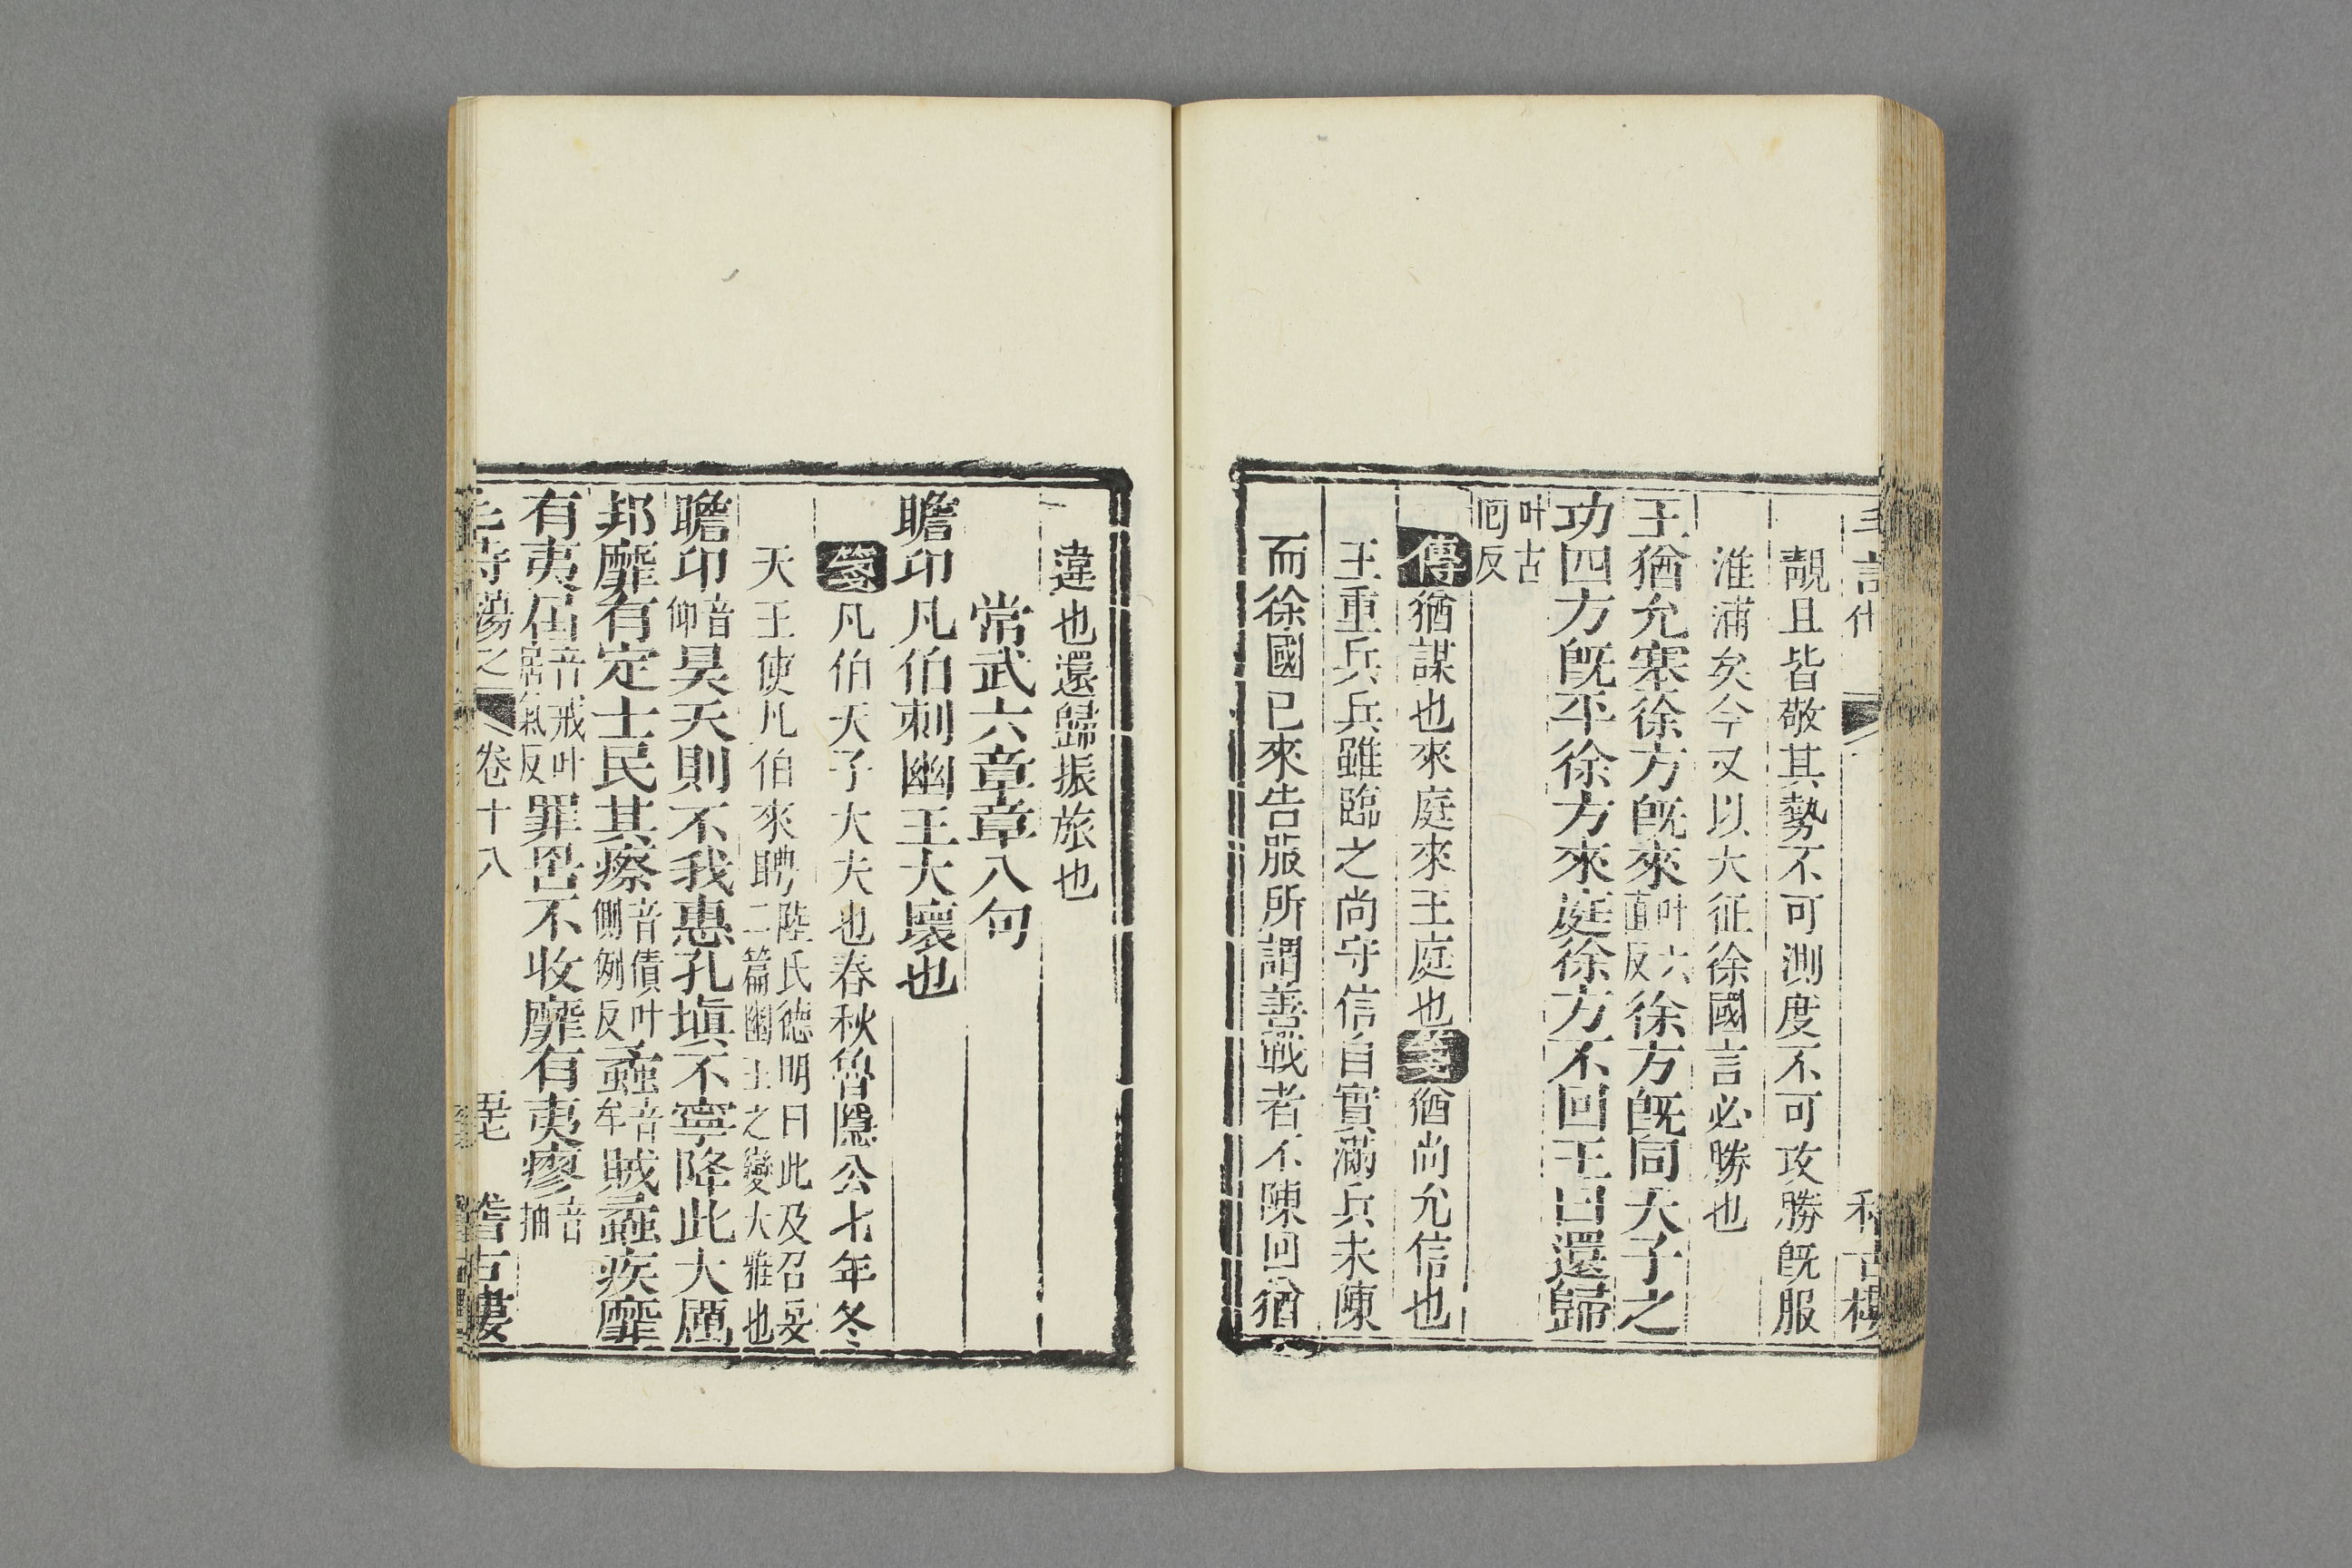 靚且皆敬其勢不可測度不可攻勝旣服
淮浦矣今又以大征徐國言必勝也
王猶允塞徐方旣來叶六直反徐方旣同天子之
功四方旣平徐方來庭徐方不回王曰還歸
叶古回反
傳猶謀也來庭來王庭也箋猶尚允信也
王重兵兵雖臨之尚守信自實滿兵未陳
而徐國已來告服所謂善戰者不陳回猶
違也還歸振旅也
常武六章章八句
瞻卬凡伯刺幽王大壞也
箋凡伯天子大夫也春秋魯隱公七年冬
天王使凡伯來聘陸氏德明曰此及召旻二篇幽王之變大雅也
瞻卬音仰昊天則不我惠孔塡不寧降此大厲
邦靡有定士民其瘵音債叶側例反蟊音牟賊蟊疾靡
有夷屆音戒叶居氣反罪罟不收靡有夷瘳音抽
毛詩 蕩之 卷十八 稽古樓